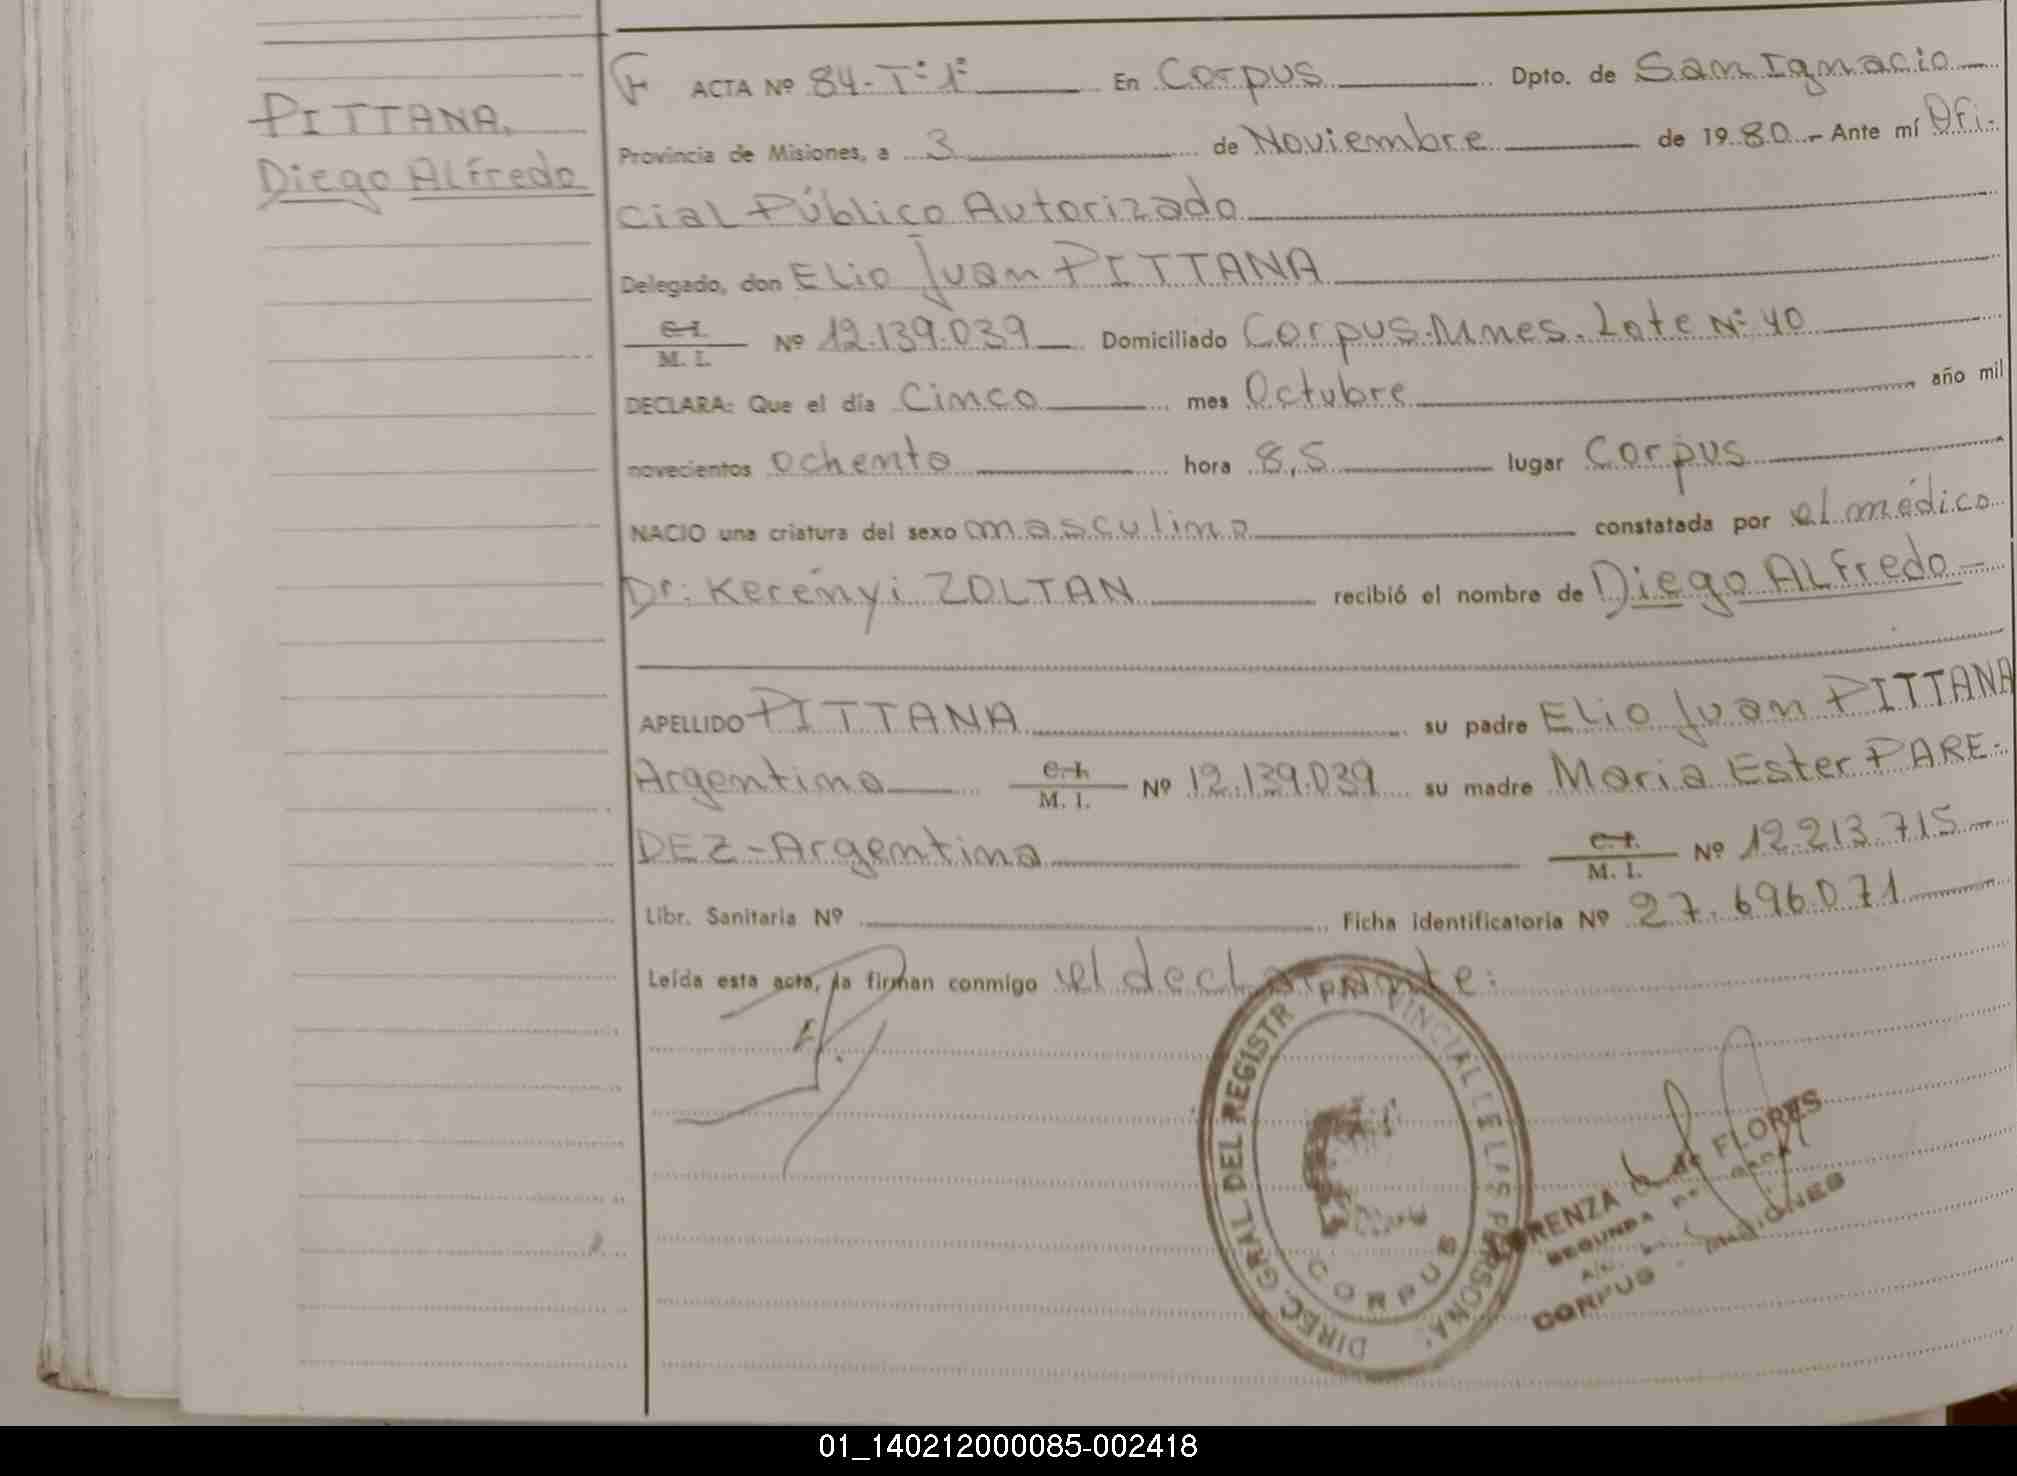 PITTANA,
Diego ALfredo
ACTA Nº 84-Tº1º En Corpus Dpto. de San Ignacio
Provincia de Misiones, a 3 de Noviembre de 1980.- Ante mí Ofi-
cial Público Autorizado
Delegado, don ELio Juan PITTANA
C.I. M. I. Nº 12.139.039 Domiciliado Corpus.Mnes. Lote Nº 40
DECLARA: Que el día Cinco mes Octubre año mil
novecientos ochenta hora 8,5 lugar Corpus
NACIO una criatura del sexo masculino constatada por el médico
Dr. Kerényi ZOLTAN recibió el nombre de Diego ALfredo
APELLIDO PITTANA su padre ELio Juan PITTANA
Argentino C.I. M. I. Nº 12.139.039 su madre Maria Ester PARE-
DEZ-Argentina C.I. M. I. Nº 12.213.715
Libr. Sanitaria Nº Ficha identificatoria Nº 27.696071
Leída esta acta, la firman conmigo el declarante:
DIREC. GRAL DEL REGISTR PROVINCIAL DE LAS PERSONAS
CORPUS
LORENZA de FLORES
SEGUNDA
CORPUS - MISIONES
01_140212000085-002418